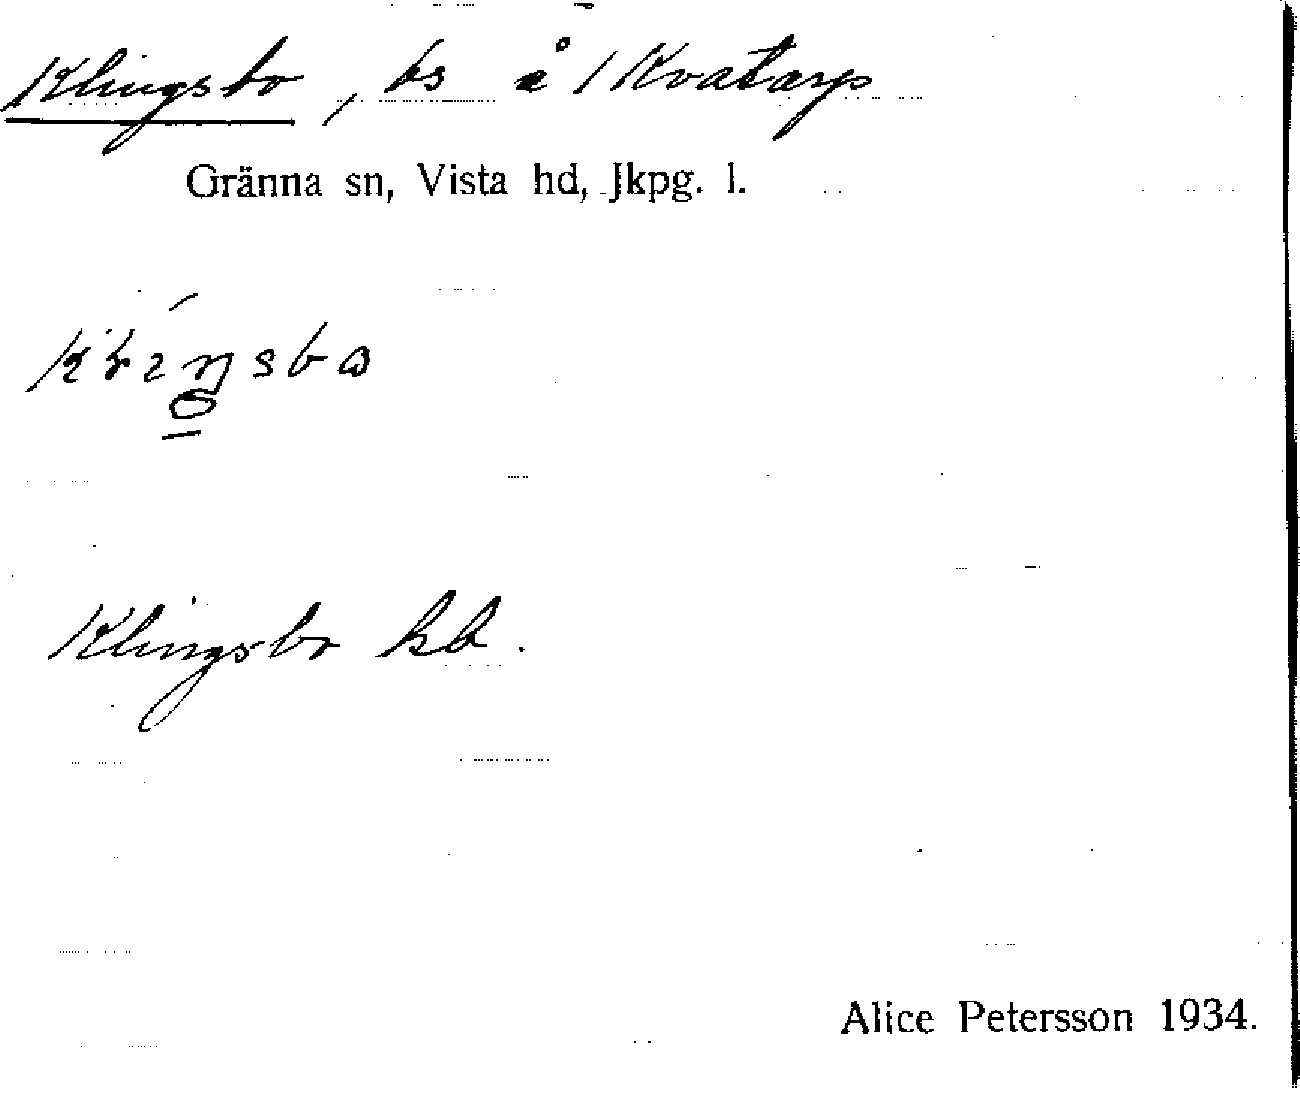 Klingsbo, bs å Kvatarp
Gränna sn, Vista hd, Jkpg. l.
Klingsbo kb.
Alice Petersson 1934.